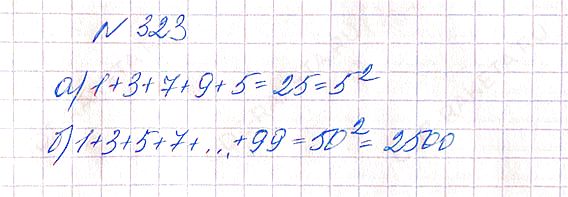 № 323
а) 1+3+7+9+5=25=5²
б) 1+3+5+7+...+99=50²=2500